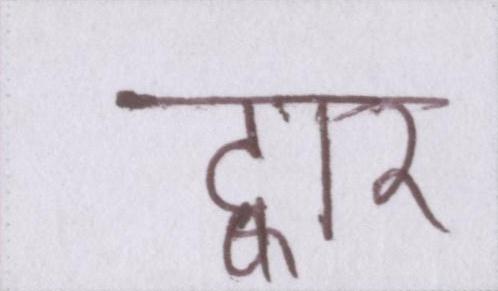 द्वार